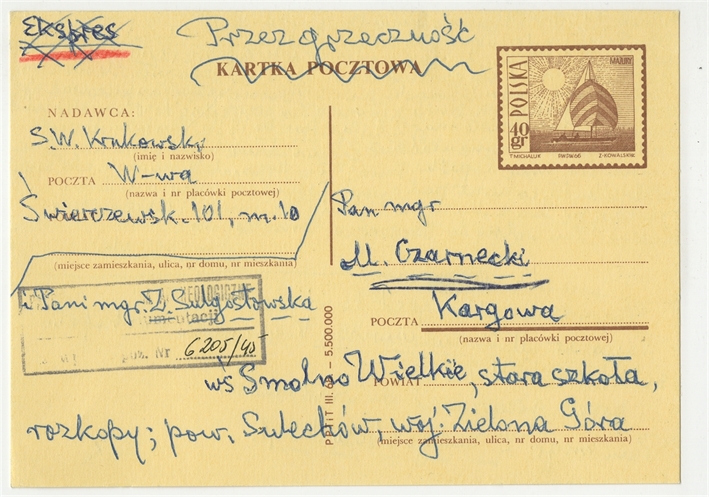 Ekspres
Przez grzeczność
KARTKA POCZTOWA
POLSKA
MAZURY
40 gr
T.MICHALUK
Z.KOWALSKI sc.
NADAWCA:
S.W. Krukowski
(imię i nazwisko)
POCZTA W-wa
(nazwa i nr placówki pocztowej)
Świerczewsk. 101, m. 10
(miejsce zamieszkania, ulica, nr domu, nr mieszkania)
i Pani mgr. Z. Sulgostowska
poz. Nr 6205/45
Pan mgr
M. Czarnecki
Kargowa
POCZTA
(nazwa i nr placówki pocztowej)
wś Smolno Wielkie, stara szkoła,
POWIAT
rozkopy; pow. Sulechów, woj. Zielona Góra
(miejsce zamieszkania, ulica, nr domu, nr mieszkania)
5.500.000